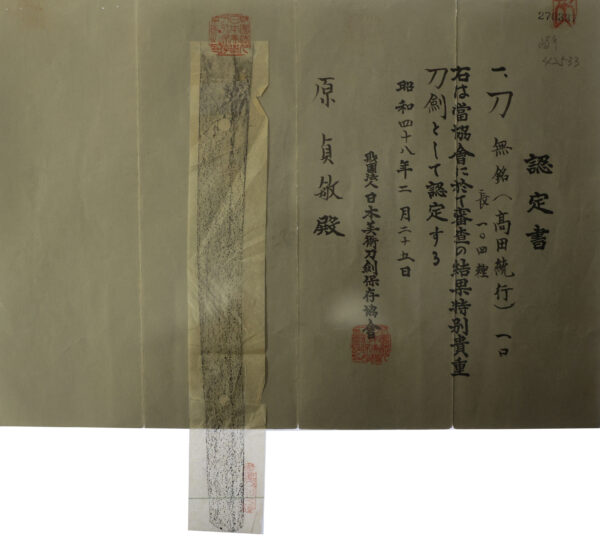 認定書
一、刀 無銘(高田統行) 一口
右は當協會に於て審査の結果特別貴重
刀劍として認定する
昭和四十八年二月二十五日
財團法人日本美術刀劍保存協會
原貞敏殿
42533